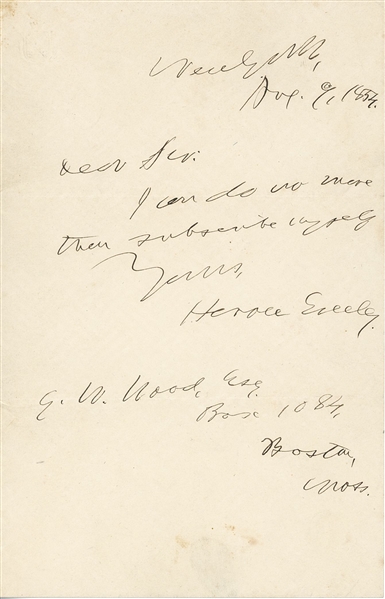 New York,
Aug. 9, 1854.
Dear Sir:
I can do no more
than subscribe myself
Yours,
Horace Greeley.
G. W. Wood, Esq.
Box 1084,
Boston,
Mass.